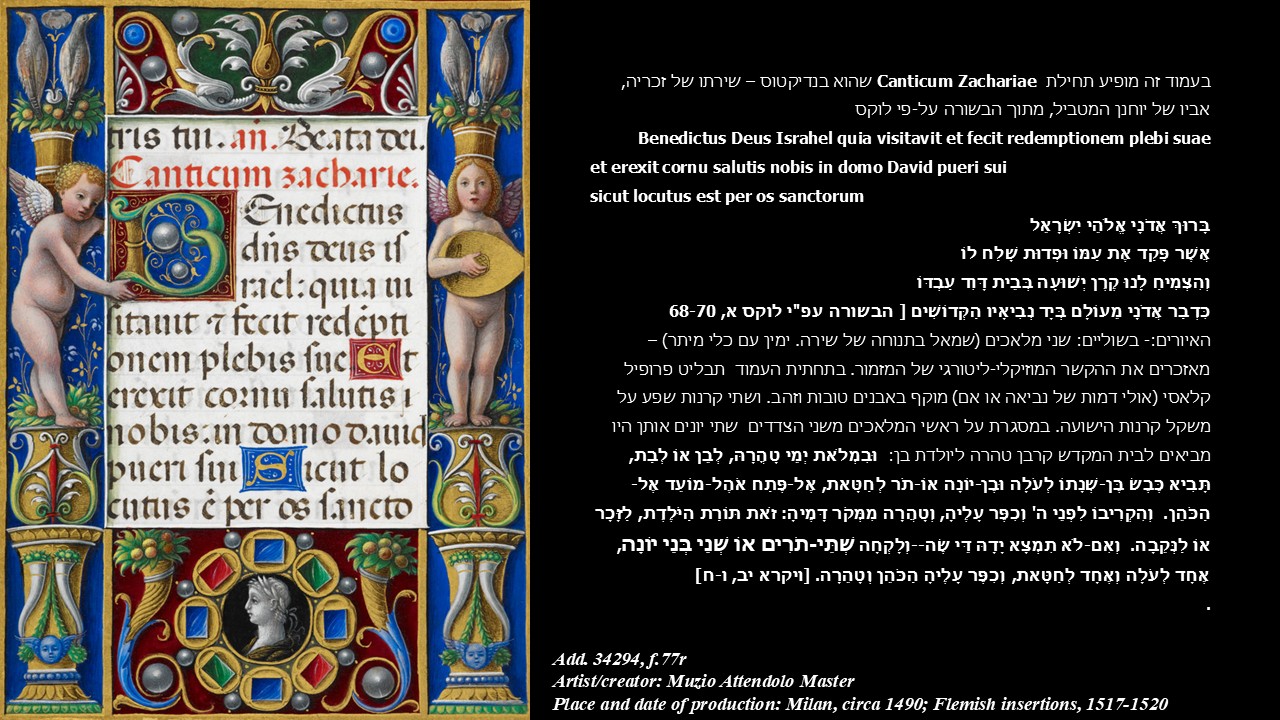 tris tui. an. Beata dei.
Canticum zacharie.
Benedictus
dñs deus is
rael: quia ui
sitauit ⁊ fecit redẽpti
onem plebis sue Et
erexit cornu salutis i
nobis. in domo dauid
pueri sui Sicut lo
cutus ẽ per os sancto
בעמוד זה מופיע תחילת Canticum Zachariae שהוא בנדיקטוס – שירתו של זכריה,
אביו של יוחנן המטביל, מתוך הבשורה על-פי לוקס
Benedictus Deus Israhel quia visitavit et fecit redemptionem plebi suae
et erexit cornu salutis nobis in domo David pueri sui
sicut locutus est per os sanctorum
בָּרוּךְ אֲדֹנָי אֱלֹהֵי יִשְׂרָאֵל
אֲשֶׁר פָּקַד אֶת עַמּוֹ וּפְדוּת שָׁלַח לוֹ
וְהִצְמִיחַ לָנוּ קֶרֶן יְשׁוּעָה בְּבֵית דָּוִד עַבְדּוֹ
כִּדְבַר אֲדֹנָי מֵעוֹלָם בְּיַד נְבִיאָיו הַקְּדוֹשִׁים [ הבשורה עפ"י לוקס א, 68-70
האיורים:- בשוליים: שני מלאכים (שמאל בתנוחה של שירה. ימין עם כלי מיתר) –
מאזכרים את ההקשר המוזיקלי-ליטורגי של המזמור. בתחתית העמוד תבליט פרופיל
קלאסי (אולי דמות של נביאה או אם) מוקף באבנים טובות וזהב. ושתי קרנות שפע על
משקל קרנות הישועה. במסגרת על ראשי המלאכים משני הצדדים שתי יונים אותן היו
מביאים לבית המקדש קרבן טהרה ליולדת בן: וּבִמְלֹאת יְמֵי טָהֳרָהּ, לְבֵן אוֹ לְבַת,
תָּבִיא כֶּבֶשׂ בֶּן-שְׁנָתוֹ לְעֹלָה וּבֶן-יוֹנָה אוֹ-תֹר לְחַטָּאת, אֶל-פֶּתַח אֹהֶל-מוֹעֵד אֶל-
הַכֹּהֵן. וְהִקְרִיבוֹ לִפְנֵי ה' וְכִפֶּר עָלֶיהָ, וְטָהֲרָה מִמְּקֹר דָּמֶיהָ: זֹאת תּוֹרַת הַיֹּלֶדֶת, לַזָּכָר
אוֹ לַנְּקֵבָה. וְאִם-לֹא תִמְצָא יָדָהּ דֵּי שֶׂה--וְלָקְחָה שְׁתֵּי-תֹרִים אוֹ שְׁנֵי בְּנֵי יוֹנָה,
אֶחָד לְעֹלָה וְאֶחָד לְחַטָּאת, וְכִפֶּר עָלֶיהָ הַכֹּהֵן וְטָהֵרָה. [ויקרא יב, ו-ח]
.
Add. 34294, f.77r
Artist/creator: Muzio Attendolo Master
Place and date of production: Milan, circa 1490; Flemish insertions, 1517-1520